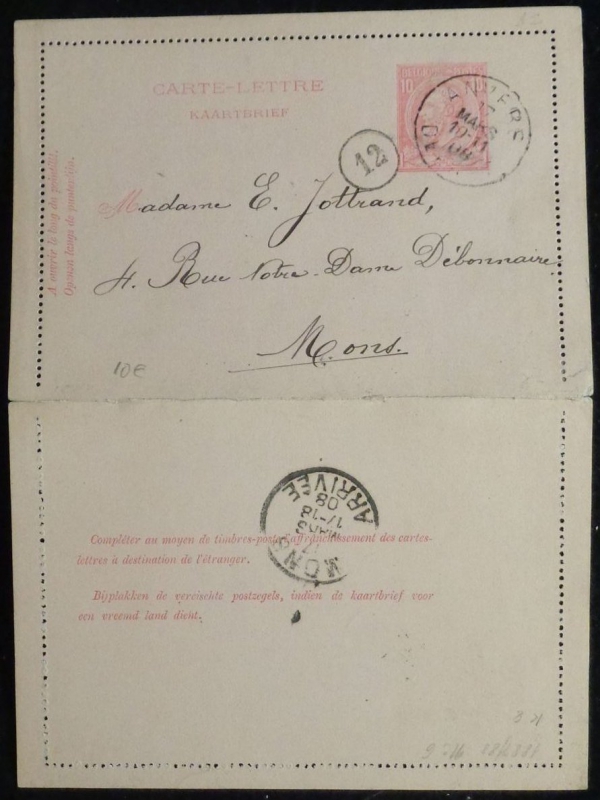 CARTE-LETTRE
KAARTBRIEF
A ouvrir le long du pointillé.
Openen langs de puntenlijn.
10
12
ANVERS
MARS
10-11
08
Madame E. Jottrand,
4. Rue Notre-Dame Débonnaire
Mons.
10€
ARRIVÉE
08
17-18
MARS
MONS
Compléter au moyen de timbres-poste l'affranchissement des cartes-
lettres à destination de l'étranger.
Bijplakken de vereischte postzegels, indien de kaartbrief voor
een vreemd land dient.